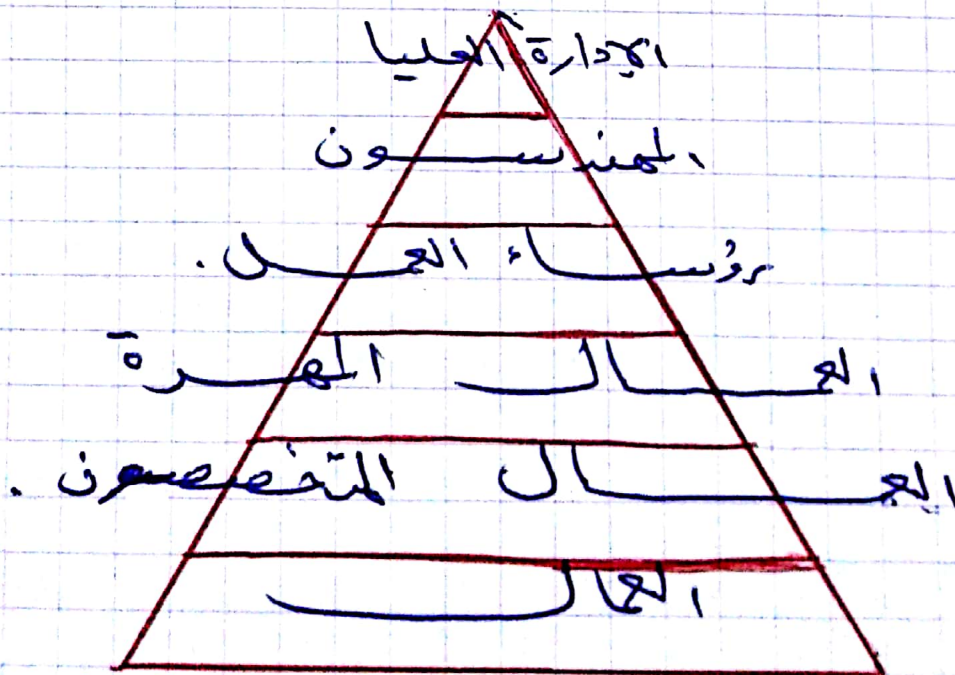 الإدارة العليا
المهندسون
رؤساء العمل.
العمال المهرة
العمال المتخصصون.
العمال